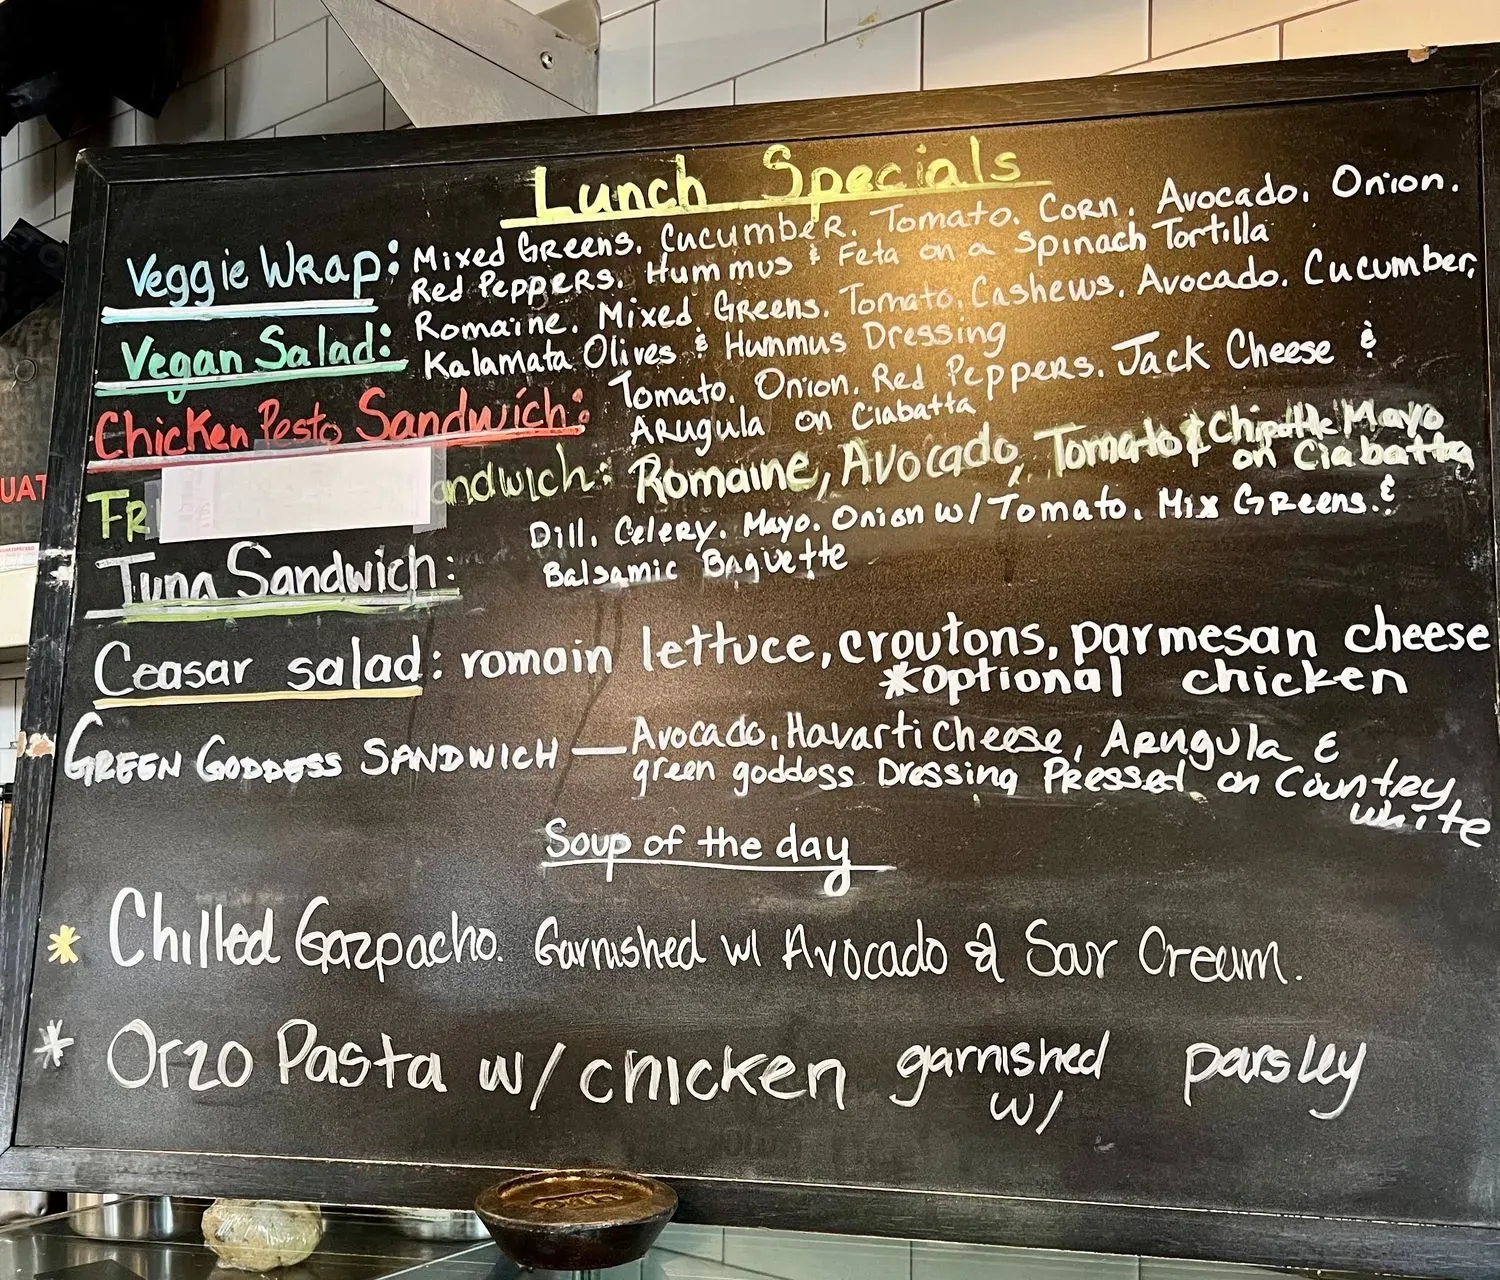 Lunch Specials
Veggie Wrap: Mixed Greens. Cucumber. Tomato. Corn. Avocado. Onion.
Red Peppers. Hummus & Feta on a Spinach Tortilla
Vegan Salad: Romaine. Mixed Greens. Tomato. Cashews. Avocado. Cucumber,
Kalamata Olives & Hummus Dressing
Chicken Pesto Sandwich: Tomato. Onion. Red Peppers. Jack Cheese &
Arugula on Ciabatta
andwich: Romaine, Avocado, Tomato & Chipotle Mayo
on Ciabatta
Tuna Sandwich: Dill. Celery. Mayo. Onion w/ Tomato. Mix Greens. &
Balsamic Baguette
Ceasar salad: romain lettuce, croutons, parmesan cheese
*optional chicken
Green Goddess Sandwich — Avocado, Havarti Cheese, Arugula &
green goddess Dressing Pressed on Country
white
Soup of the day
* Chilled Gazpacho. Garnished w/ Avocado & Sour Cream.
* Orzo Pasta w/ chicken garnished parsley
w/
UAT